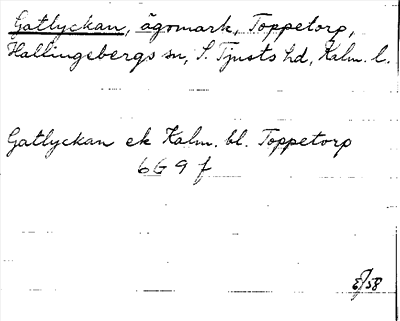 Gatlyckan, ägomark, Toppetorp,
Hallingebergs sn, S. Tjusts hd, Kalm. l.
Gatlyckan ek Kalm. bl. Toppetorp
6G 9 f
E/58